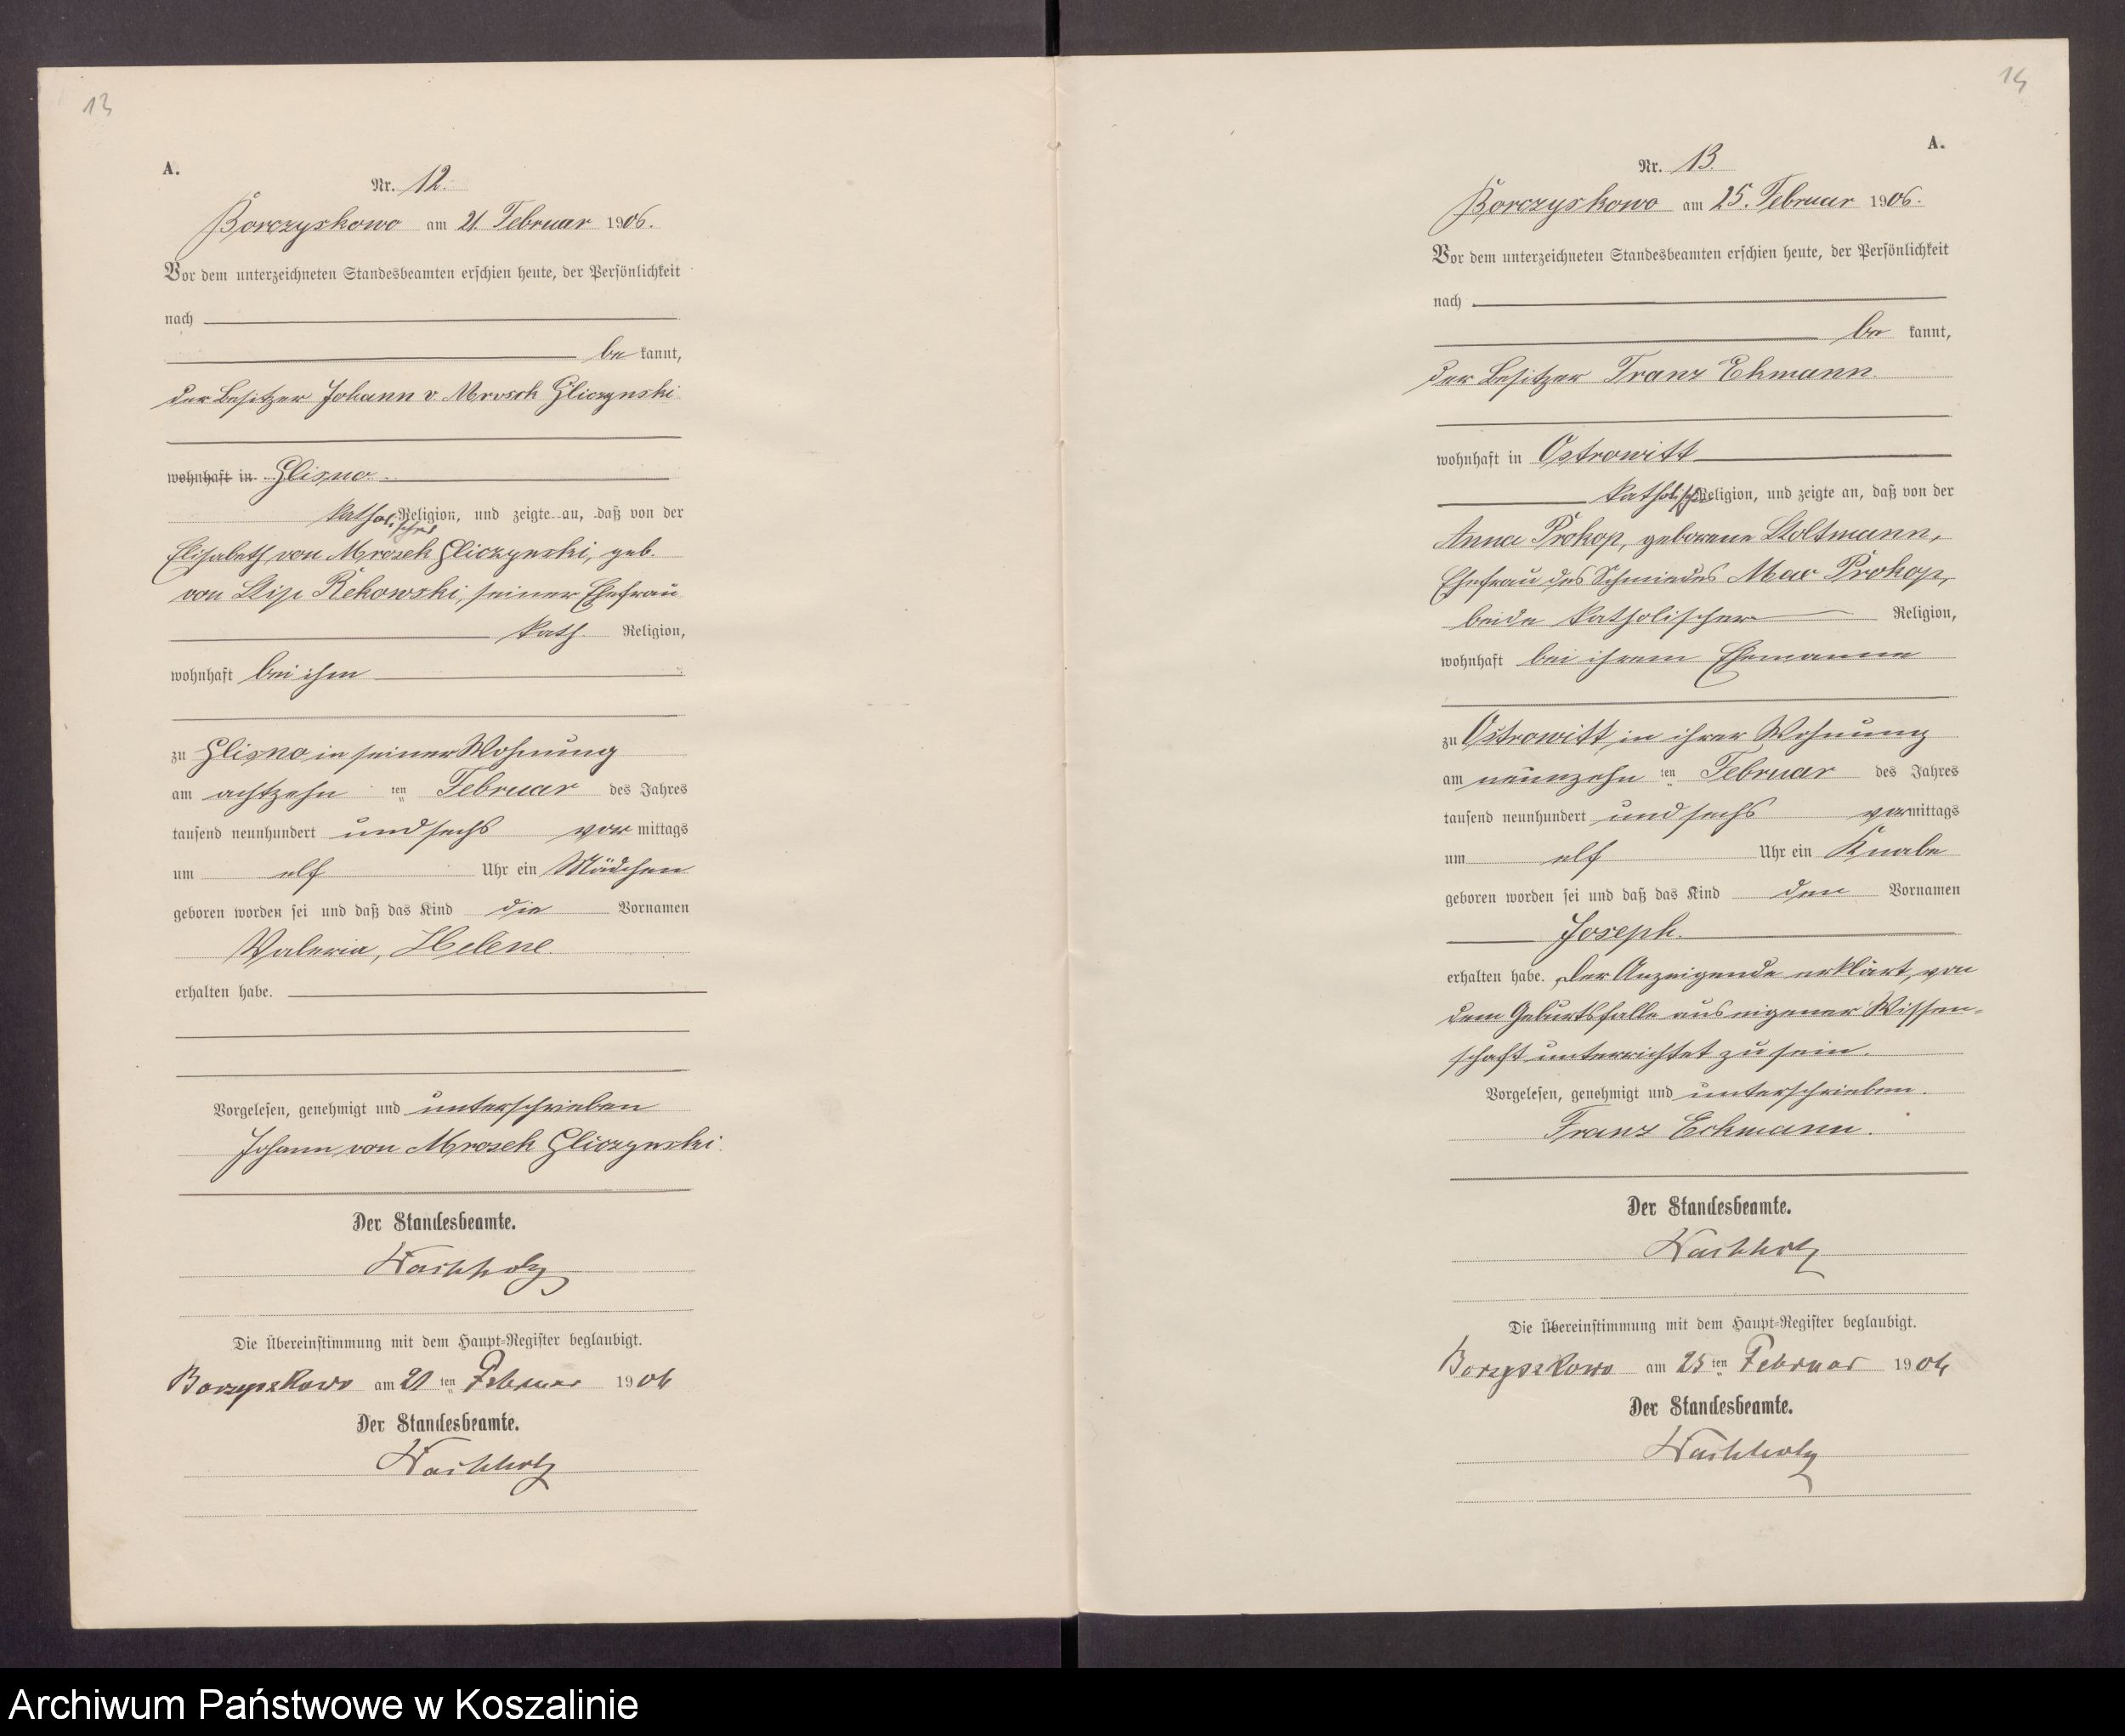 13
A.
Nr. 12.
Borczyskowo am 21. Februar 1906.
Vor dem unterzeichneten Standesbeamten erschien heute, der Persönlichkeit
nach
be kannt,
der Besitzer Johann v. Mrosek Gliczynski
wohnhaft in Glisno.
katholischer Religion, und zeigte an, daß von der
Elisabeth von Mrosek Gliczynski, geb.
von Stip Rekowski, seiner Ehefrau
kath. Religion,
wohnhaft bei ihm
zu Glisno in seiner Wohnung
am achtzehn ten Februar des Jahres
tausend neunhundert und sechs vor mittags
um elf Uhr ein Mädchen
geboren worden sei und daß das Kind die Vornamen
Valeria, Helene.
erhalten habe.
Vorgelesen, genehmigt und unterschrieben
Johann von Mrosek Gliczynski.
Der Standesbeamte.
Wachholz
Die Übereinstimmung mit dem Haupt-Register beglaubigt.
Borzyszkowo am 21 ten Februar 1906
Der Standesbeamte.
Wachholz
14
A.
Nr. 13.
Borczyskowo am 25. Februar 1906.
Vor dem unterzeichneten Standesbeamten erschien heute, der Persönlichkeit
nach
be kannt,
der Besitzer Franz Ekmann.
wohnhaft in Ostrowitt
katholischer Religion, und zeigte an, daß von der
Anna Prokop, geborene Stoltmann,
Ehefrau des Schmiedes Max Prokop,
beide katholischer Religion,
wohnhaft bei ihrem Ehemanne
zu Ostrowitt in ihrer Wohnung
am neunzehn ten Februar des Jahres
tausend neunhundert und sechs vormittags
um elf Uhr ein Knabe
geboren worden sei und daß das Kind den Vornamen
Joseph.
erhalten habe. Der Anzeigende erklärt, von
dem Geburtsfalle aus eigener Wissen-
schaft unterrichtet zu sein.
Vorgelesen, genehmigt und unterschrieben.
Franz Eckmann.
Der Standesbeamte.
Wachholz
Die Übereinstimmung mit dem Haupt-Register beglaubigt.
Borzyszkowo am 25 ten Februar 1906
Der Standesbeamte.
Wachholz
Archiwum Państwowe w Koszalinie